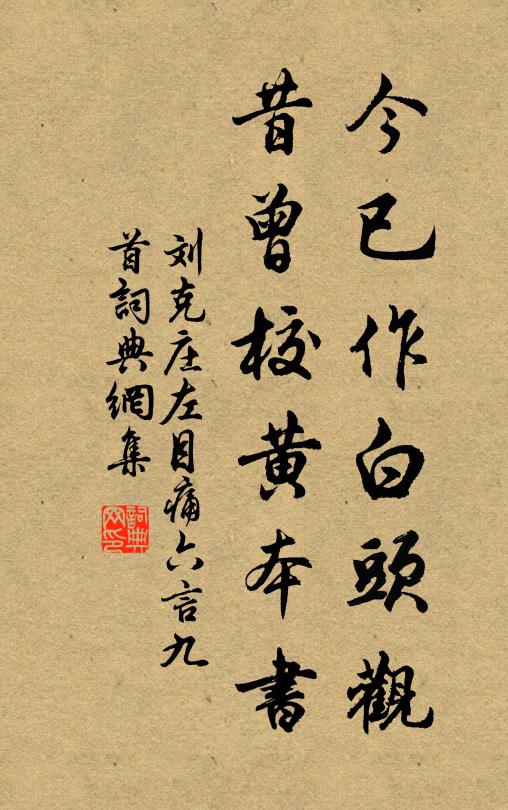 今已作白頭觀
昔曾校黄本書
刘克庄左目痛六言九
首詞典網集
詞典
网印